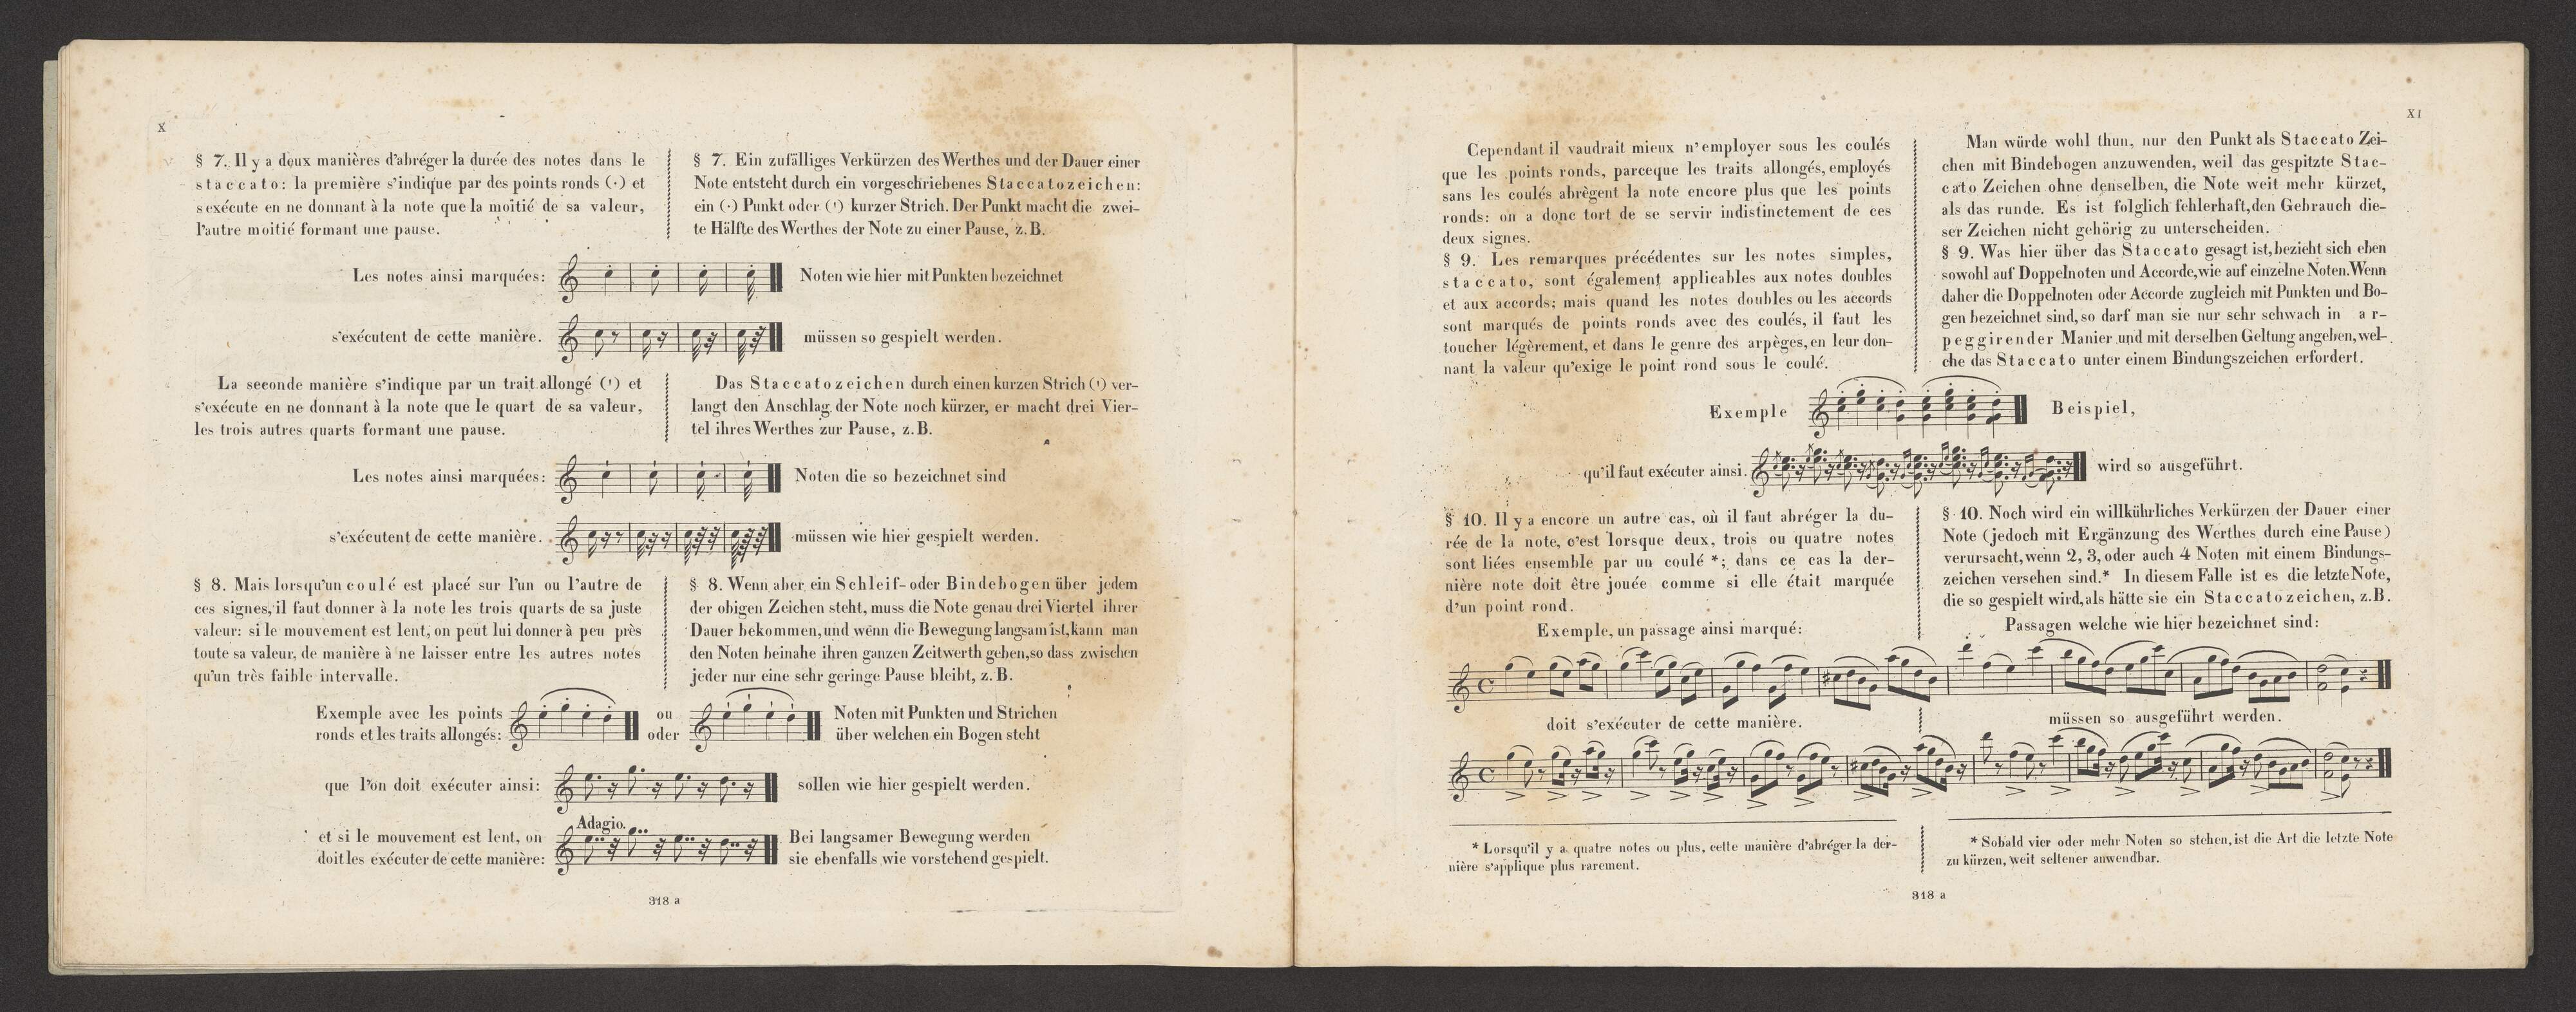 X
§ 7. Il y a deux manières d'abréger la durée des notes dans le
staccato: la première s'indique par des points ronds (·) et
s'exécute en ne donnant à la note que la moitié de sa valeur,
l'autre moitié formant une pause.
§ 7. Ein zufälliges Verkürzen des Werthes und der Dauer einer
Note entsteht durch ein vorgeschriebenes Staccatozeichen:
ein (·) Punkt oder (') kurzer Strich. Der Punkt macht die zwei-
te Hälfte des Werthes der Note zu einer Pause, z. B.
Les notes ainsi marquées:
Noten wie hier mit Punkten bezeichnet
s'exécutent de cette manière.
müssen so gespielt werden.
La seconde manière s'indique par un trait allongé (') et
s'exécute en ne donnant à la note que le quart de sa valeur,
les trois autres quarts formant une pause.
Das Staccatozeichen durch einen kurzen Strich (') ver-
langt den Anschlag der Note noch kürzer, er macht drei Vier-
tel ihres Werthes zur Pause, z. B.
Les notes ainsi marquées:
Noten die so bezeichnet sind
s'exécutent de cette manière.
müssen wie hier gespielt werden.
§ 8. Mais lorsqu'un coulé est placé sur l'un ou l'autre de
ces signes, il faut donner à la note les trois quarts de sa juste
valeur: si le mouvement est lent, on peut lui donner à peu près
toute sa valeur, de manière à ne laisser entre les autres notes
qu'un très faible intervalle.
§ 8. Wenn aber ein Schleif- oder Bindebogen über jedem
der obigen Zeichen steht, muss die Note genau drei Viertel ihrer
Dauer bekommen, und wenn die Bewegung langsam ist, kann man
den Noten beinahe ihren ganzen Zeitwerth geben, so dass zwischen
jeder nur eine sehr geringe Pause bleibt, z. B.
Exemple avec les points
ronds et les traits allongés:
ou
oder
Noten mit Punkten und Strichen
über welchen ein Bogen steht
que l'on doit exécuter ainsi:
sollen wie hier gespielt werden.
Adagio.
et si le mouvement est lent, on
doit les exécuter de cette manière:
Bei langsamer Bewegung werden
sie ebenfalls wie vorstehend gespielt.
318 a
XI
Cependant il vaudrait mieux n'employer sous les coulés
que les points ronds, parceque les traits allongés, employés
sans les coulés abrègent la note encore plus que les points
ronds: on a donc tort de se servir indistinctement de ces
deux signes.
§ 9. Les remarques précédentes sur les notes simples,
staccato, sont également applicables aux notes doubles
et aux accords: mais quand les notes doubles ou les accords
sont marqués de points ronds avec des coulés, il faut les
toucher légèrement, et dans le genre des arpèges, en leur don-
nant la valeur qu'exige le point rond sous le coulé.
Man würde wohl thun, nur den Punkt als Staccato Zei-
chen mit Bindebogen anzuwenden, weil das gespitzte Stac-
cato Zeichen ohne denselben, die Note weit mehr kürzet,
als das runde. Es ist folglich fehlerhaft, den Gebrauch die-
ser Zeichen nicht gehörig zu unterscheiden.
§ 9. Was hier über das Staccato gesagt ist, bezieht sich eben
sowohl auf Doppelnoten und Accorde, wie auf einzelne Noten. Wenn
daher die Doppelnoten oder Accorde zugleich mit Punkten und Bo-
gen bezeichnet sind, so darf man sie nur sehr schwach in ar-
peggirender Manier und mit derselben Geltung angeben, wel-
che das Staccato unter einem Bindungszeichen erfordert.
Exemple
Beispiel,
qu'il faut exécuter ainsi.
wird so ausgeführt.
§ 10. Il y a encore un autre cas, où il faut abréger la du-
rée de la note, c'est lorsque deux, trois ou quatre notes
sont liées ensemble par un coulé *; dans ce cas la der-
nière note doit être jouée comme si elle était marquée
d'un point rond.
Exemple, un passage ainsi marqué:
§ 10. Noch wird ein willkührliches Verkürzen der Dauer einer
Note (jedoch mit Ergänzung des Werthes durch eine Pause)
verursacht, wenn 2, 3, oder auch 4 Noten mit einem Bindungs-
zeichen versehen sind.* In diesem Falle ist es die letzte Note,
die so gespielt wird, als hätte sie ein Staccatozeichen, z. B.
Passagen welche wie hier bezeichnet sind:
doit s'exécuter de cette manière.
müssen so ausgeführt werden.
* Lorsqu'il y a quatre notes ou plus, cette manière d'abréger la der-
nière s'applique plus rarement.
* Sobald vier oder mehr Noten so stehen, ist die Art die letzte Note
zu kürzen, weit seltener anwendbar.
318 a